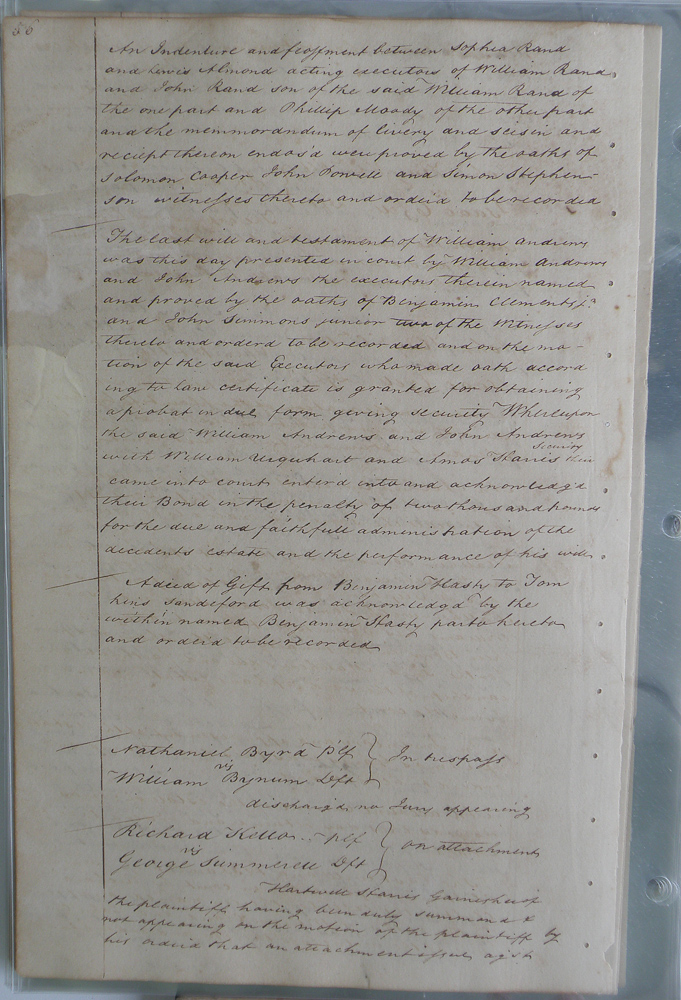 An Indenture and feoffment between Sophia Rand
and Lewis Almond acting executors of William Rand
and John Rand son of the said William Rand of
the one part and Phillip Moody of the other part
and the memmorandum of livery and seisin and
reciept thereon endos'd were proved by the oaths of
Solomon Cooper John Powell and Simon Stephen-
son witnesses thereto and orderd to be recorded
The last will and testament of William Andrews
was this day presented in court by William Andrews
and John Andrews the executors therein named
and proved by the oaths of Benjamin Clements jr
and John Simmons junior two of the Witnesses
thereto and orderd to be recorded and on the mo-
tion of the said Executors who made oath accord
ing to law certificate is granted for obtaining
a probat in due form giving security Whereupon
the said William Andrews and John Andrews
with William Urquhart and Amos Harris their security
came into court enterd into and acknowledg'd
their Bond in the penalty of two thousand pounds
for the due and faithfull administration of the
decedents estate and the performance of his will
A deed of Gift from Benjamin Hasty to Tom
kins Sandeford was acknowledgd by the
within named Benjamin Hasty party hereto
and orderd to be recorded
Nathaniel Byrd Plf
vs
William Bynum Dft
In trespass
discharg'd no Jury appearing
Richard Kello Plf
vs
George Summerell Dft
on attachment
Hartwell Harris Garnishee of
the plaintiff having been duly summond &
not appearing on the motion of the plaintiff by
his orderd that an attachment issue agst